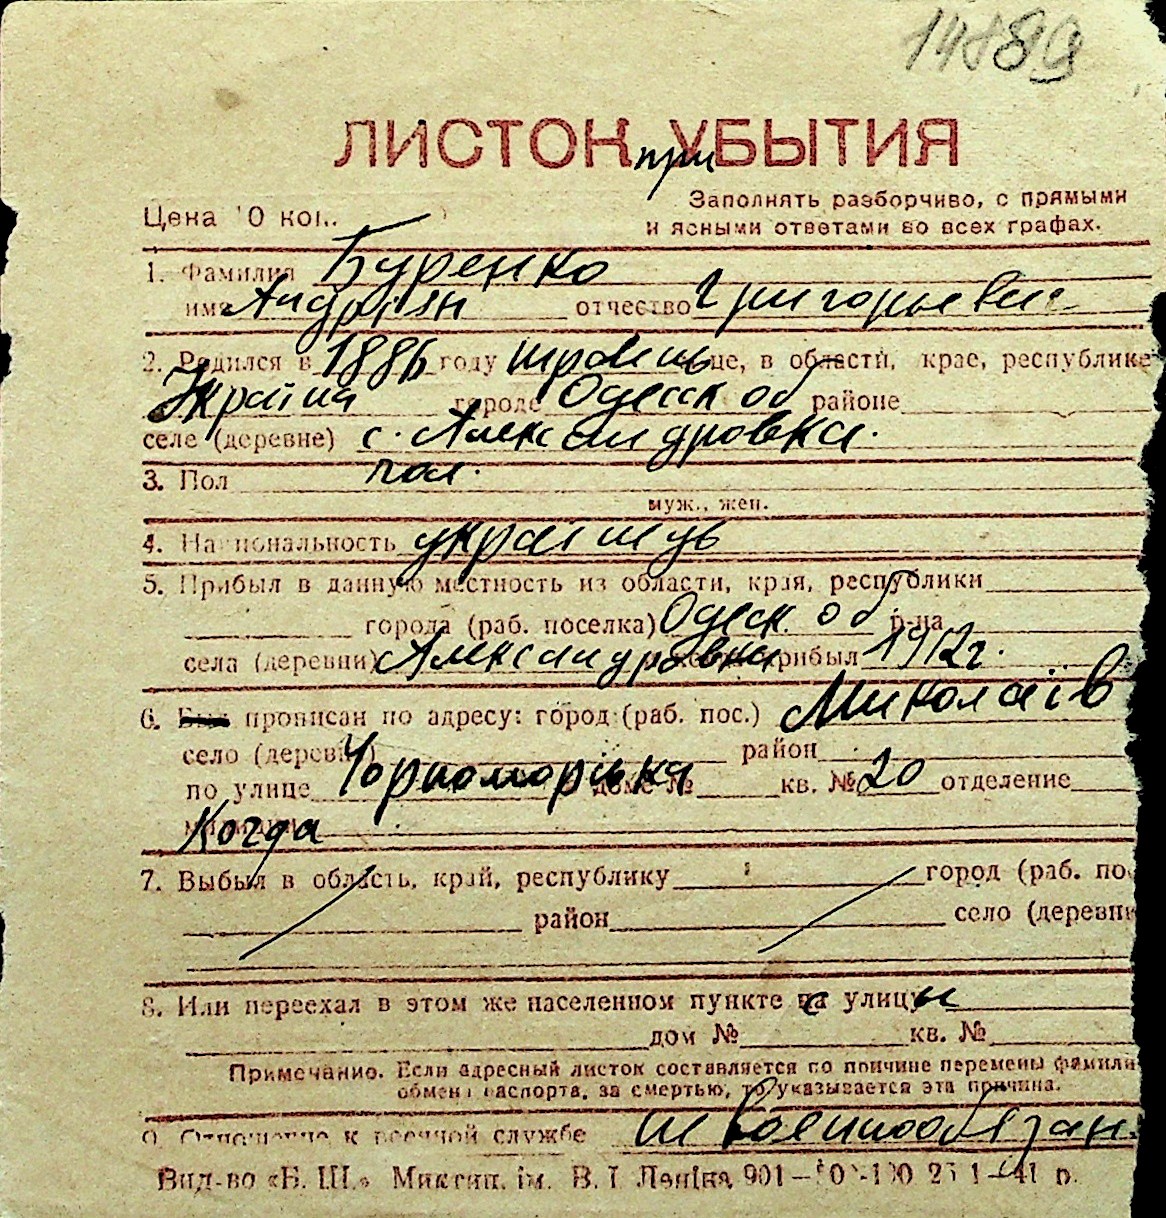 14889
ЛИСТОК при УБЫТИЯ
Заполнять разборчиво, с прямыми
Цена 10 коп.
и ясными ответами во всех графах.
1. Фамилия Буренко
имя Андріян отчество Григорьевич
2. Родился в 1886 году місяце, в области, крае, республике
Україна городе Одесск об районе
селе (деревне) с. Александровка.
3. Пол
муж., жен.
4. Национальность українець
5. Прибыл в данную местность из области, края, республики
города (раб. поселка) Одеск. об р-на
села (деревни) Александровка прибыл 1912 г.
6. Был прописан по адресу: город (раб. пос.) Миколаїв
село (деревня) район
по улице Чорноморівка дом № кв. № 20 отделение
милиции Когда
7. Выбыл в область, край, республику город (раб. пос
район село (деревни
8. Или переехал в этом же населенном пункте с улицы
дом № кв. №
Примечание. Если адресный листок составляется по причине перемены фамили
обмена паспорта, за смертью, то указывается эта причина.
9. Отношение к военной службе военнообязан.
Вид-во «Б. Ш.» Микгип. ім. В. І. Леніна 901— 25 1—41 р.